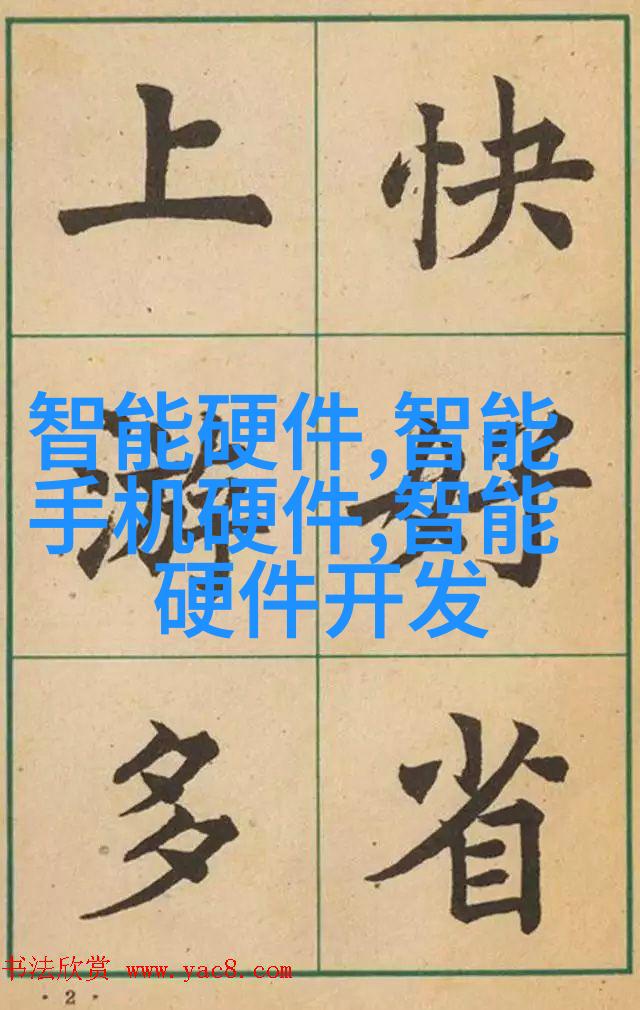 上游多
快好省
智能硬件,智能
手机硬件,智能
硬件开发
书法欣赏 www.yac8.com
·2·